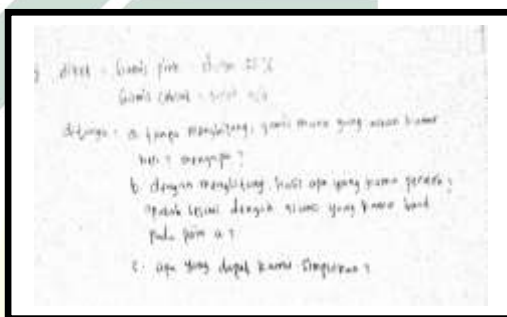 diket = Gamis pink - diskon
Gamis coklat -
ditanya = a. tanpa menghitung, gamis mana yang akan kamu
beli ? mengapa ?
b. dengan menghitung, hasil apa yang kamu peroleh ?
apakah sesuai dengan yang kamu buat
pada poin a ?
c. apa yang dapat kamu simpulkan ?